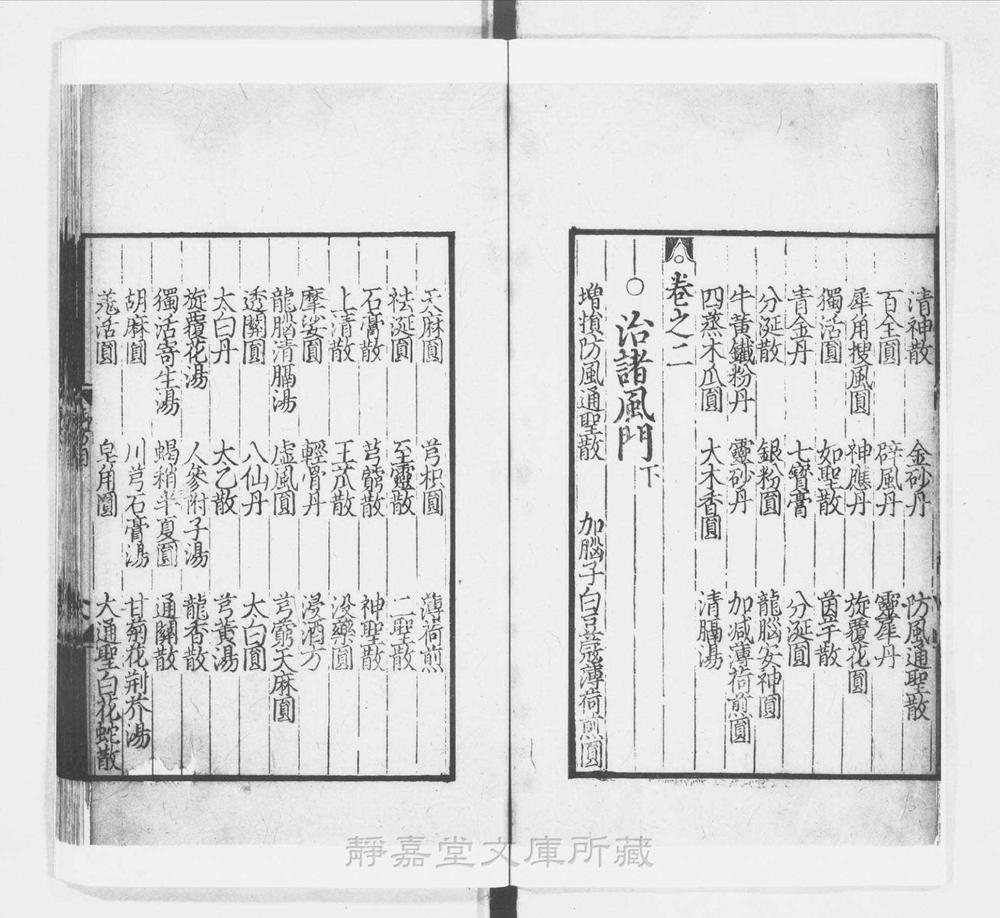 清神散 金砂丹 防風通聖散
百全圓 辟風丹 靈犀丹
犀角搜風圓 神應丹 旋覆花圓
獨活圓 如聖散 茵芋散
青金丹 七寶膏 分涎圓
分涎散 銀粉圓 龍腦安神圓
牛黃鐵粉丹 靈砂丹 加減薄荷煎圓
四蒸木瓜圓 大木香圓 清膈湯
卷之二
○治諸風門下
增損防風通聖散 加腦子白豆蔻薄荷煎圓
天麻圓 芎枳圓 薄荷煎
祛涎圓 至靈散 二聖散
石膏散 芎藭散 神聖散
上清散 王芯散 沒藥圓
摩娑圓 輕骨丹 浸酒方
龍腦清膈湯 虛風圓 芎藭天麻圓
透關圓 八仙丹 太白圓
太白丹 大乙散 芎黃湯
旋覆花湯 人參附子湯 龍香散
獨活寄生湯 蝎梢半夏圓 通關散
胡麻圓 川芎石膏湯 甘菊花荊芥湯
羗活圓 皂角圓 大通聖白花蛇散
靜嘉堂文庫所藏